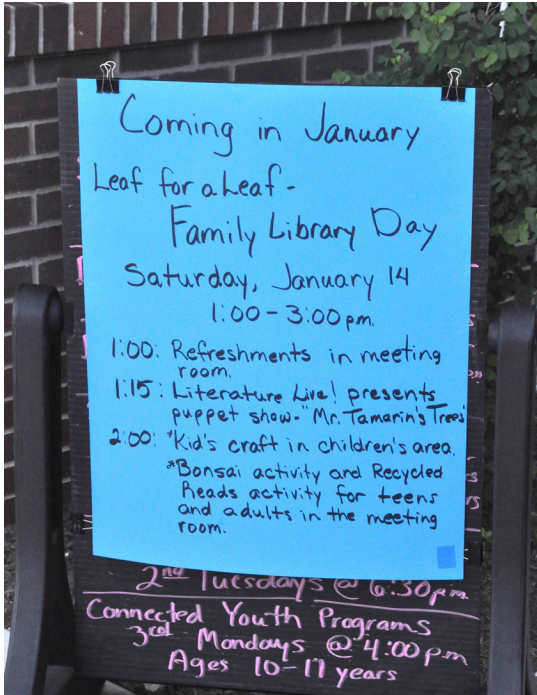 Coming in January
Leaf for a Leaf -
Family Library Day
Saturday, January 14
1:00 - 3:00 pm.
1:00: Refreshments in meeting
room.
1:15: Literature Live! presents
puppet show - "Mr. Tamarin's Trees"
2:00: *Kid's craft in children's area.
*Bonsai activity and Recycled
Reads activity for teens
and adults in the meeting
room.
2nd Tuesdays @ 6:30pm
Connected Youth Programs
3rd Mondays @ 4:00 pm
Ages 10-17 years